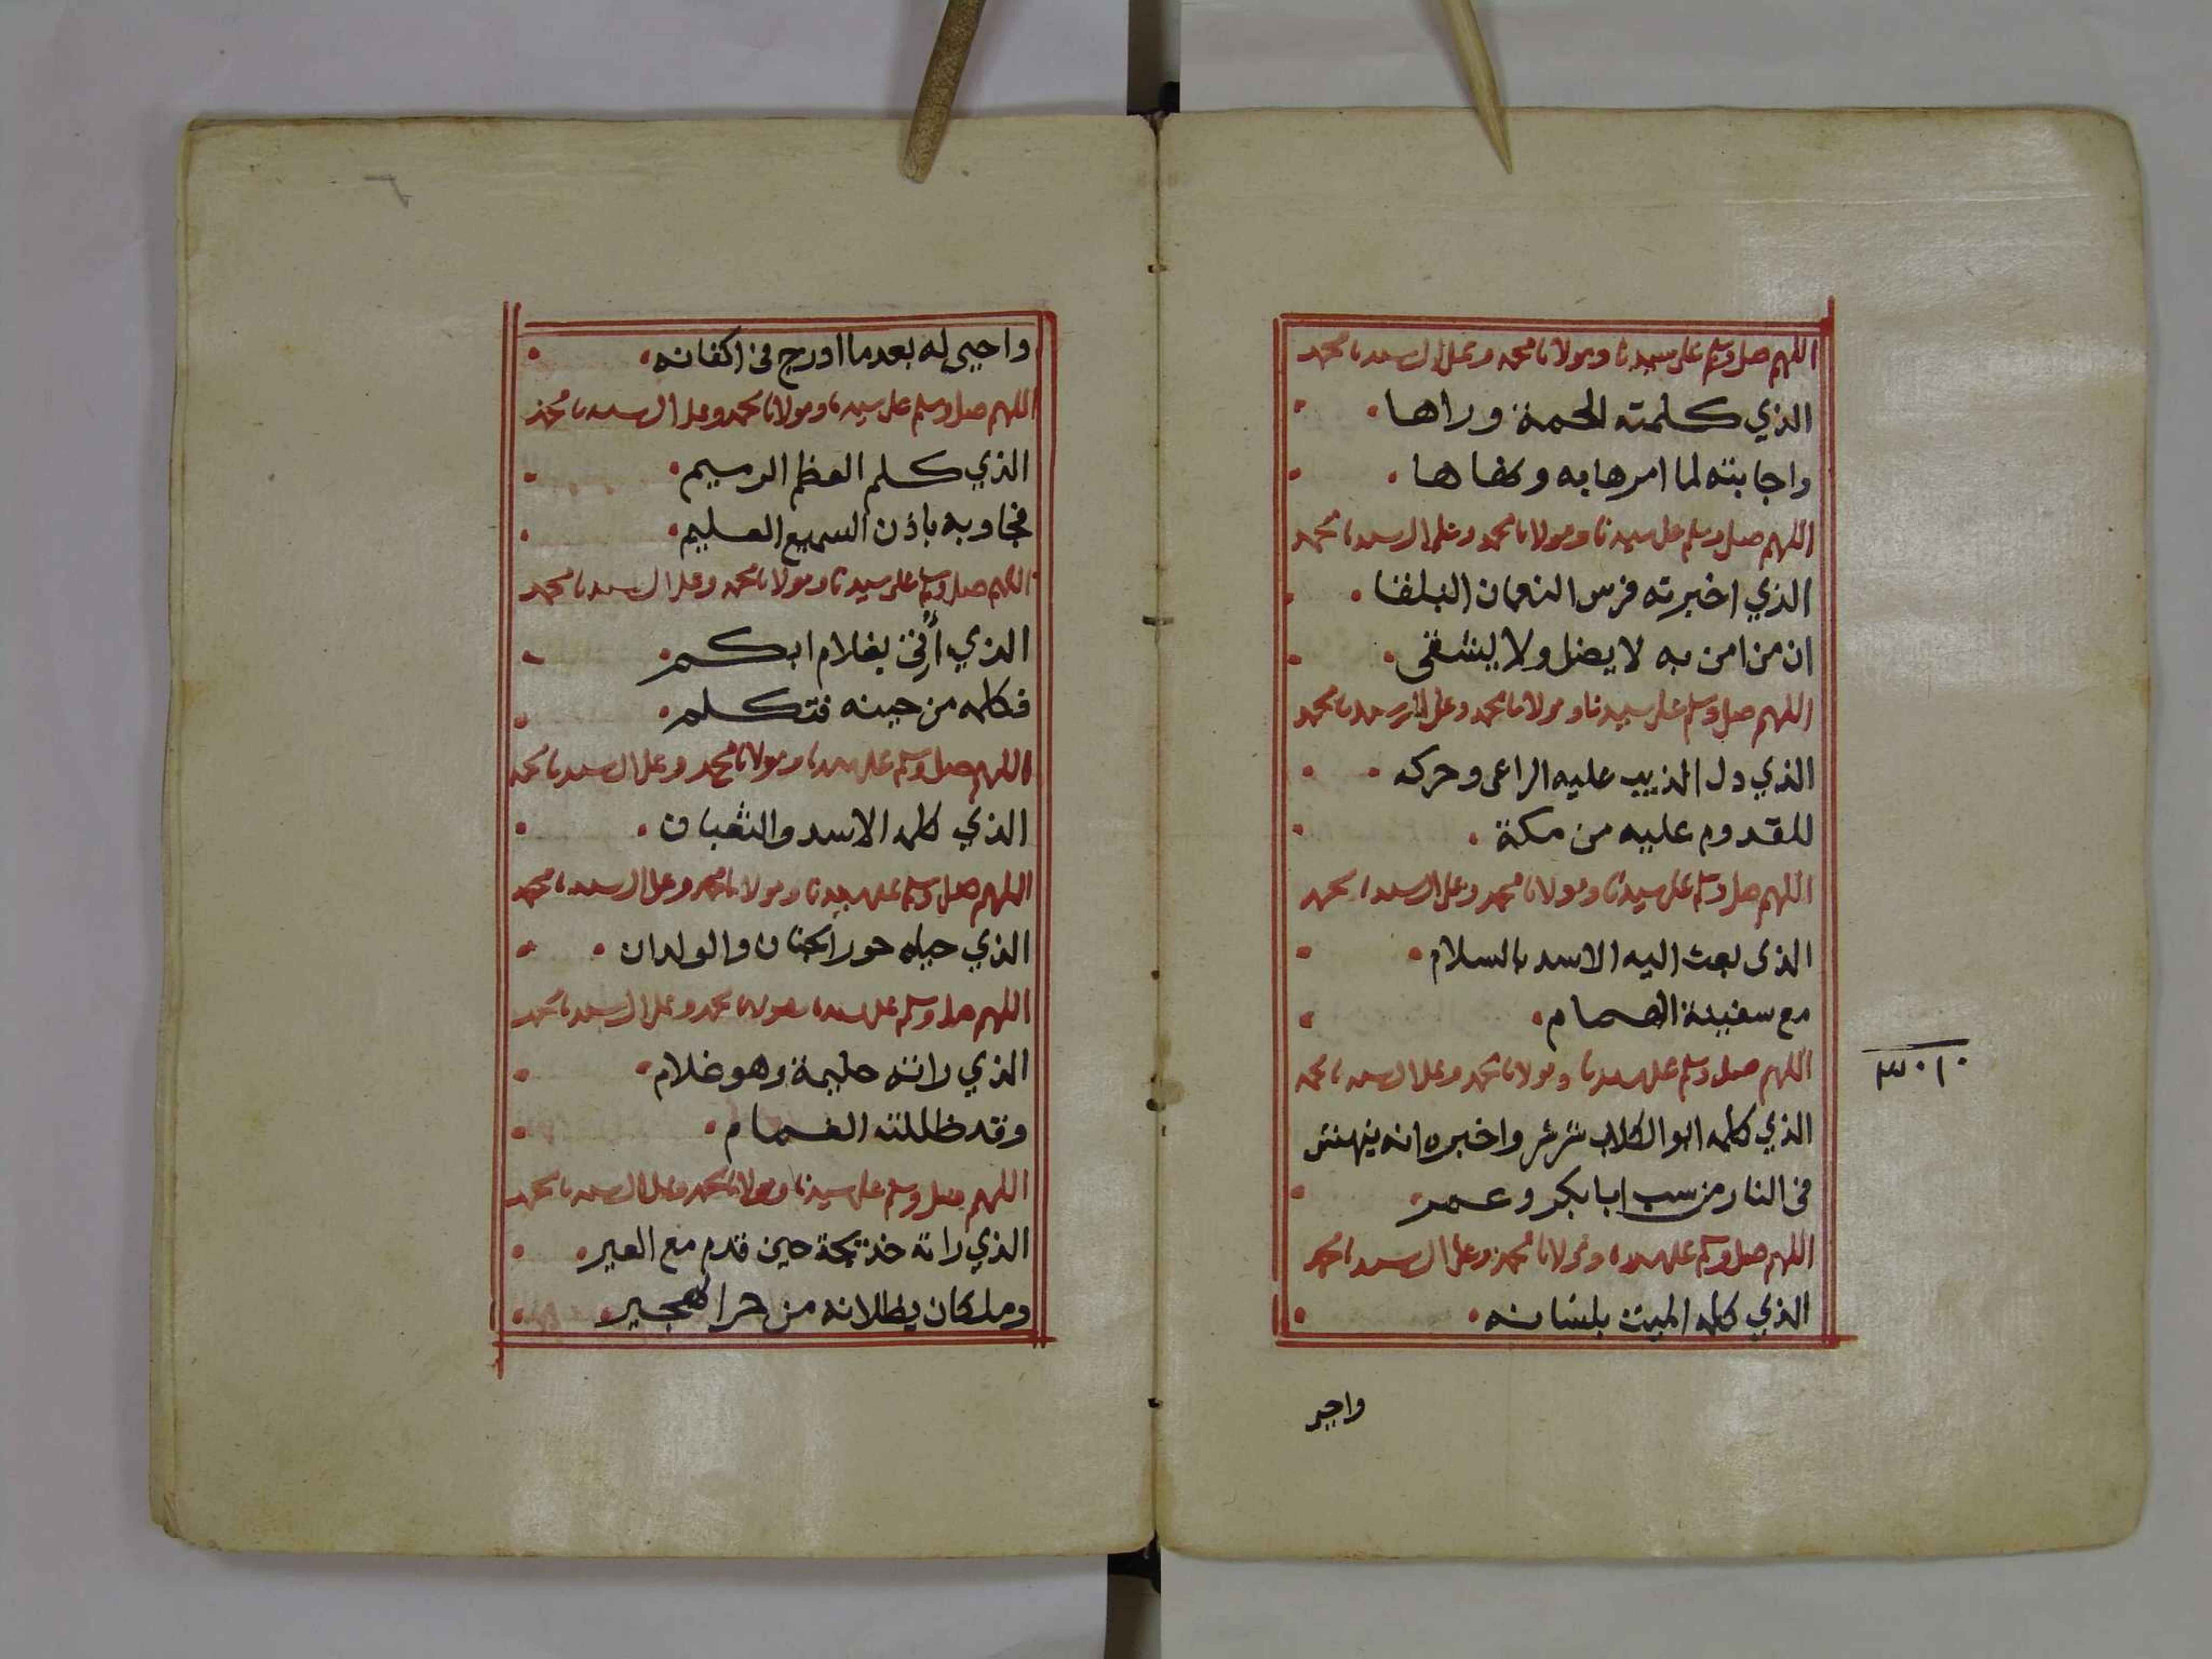 اللهم صل وسلم على سيدنا ومولانا محمد وعلى ال سيدنا محمد
الذي كلمته الحمة وراها
واجابته لما امرها به ونهاها
اللهم صل وسلم على سيدنا ومولانا محمد وعلى ال سيدنا محمد
الذي اخبرته فرس النعمان البلقا
ان من امن به لا يضل ولا يشقى
اللهم صل وسلم على سيدنا ومولانا محمد وعلى ال سيدنا محمد
الذي دل الذيب عليه الراعى وحركه
للقدوم عليه من مكة
اللهم صل وسلم على سيدنا ومولانا محمد وعلى ال سيدنا محمد
الذى بعث اليه الاسد بالسلام
مع سفينة الهمام
٣٠١٠
اللهم صل وسلم على سيدنا ومولانا محمد وعلى ال سيدنا محمد
الذي كلمه ابو الكلاب واخبره انه ينهش
فى النار من سب ابا بكر وعمر
اللهم صل وسلم على سيدنا ومولانا محمد وعلى ال سيدنا محمد
الذي كلمه الميت بلسانه
واجر
٦
واجيى له بعدما اورج فى اكفانه
اللهم صل وسلم على سيدنا ومولانا محمد وعلى ال سيدنا محمد
الذي كلم العظم الرميم
فجاوبه باذن السميع العليم
اللهم صل وسلم على سيدنا ومولانا محمد وعلى ال سيدنا محمد
الذي أتي بغلام ابكم
فكلمه من حينه فتكلم
اللهم صل وسلم على سيدنا ومولانا محمد وعلى ال سيدنا محمد
الذي كلمه الاسد والثعبان
اللهم صل وسلم على سيدنا ومولانا محمد وعلى ال سيدنا محمد
الذي حباه حور الجنان والولدان
اللهم صل وسلم على سيدنا ومولانا محمد وعلى ال سيدنا محمد
الذي راته حليمة وهو غلام
وقد ظللته الغمام
اللهم صل وسلم على سيدنا ومولانا محمد وعلى ال سيدنا محمد
الذي راته خديجة حين قدم مع العير
وملكان يظلانه من حر الهجير